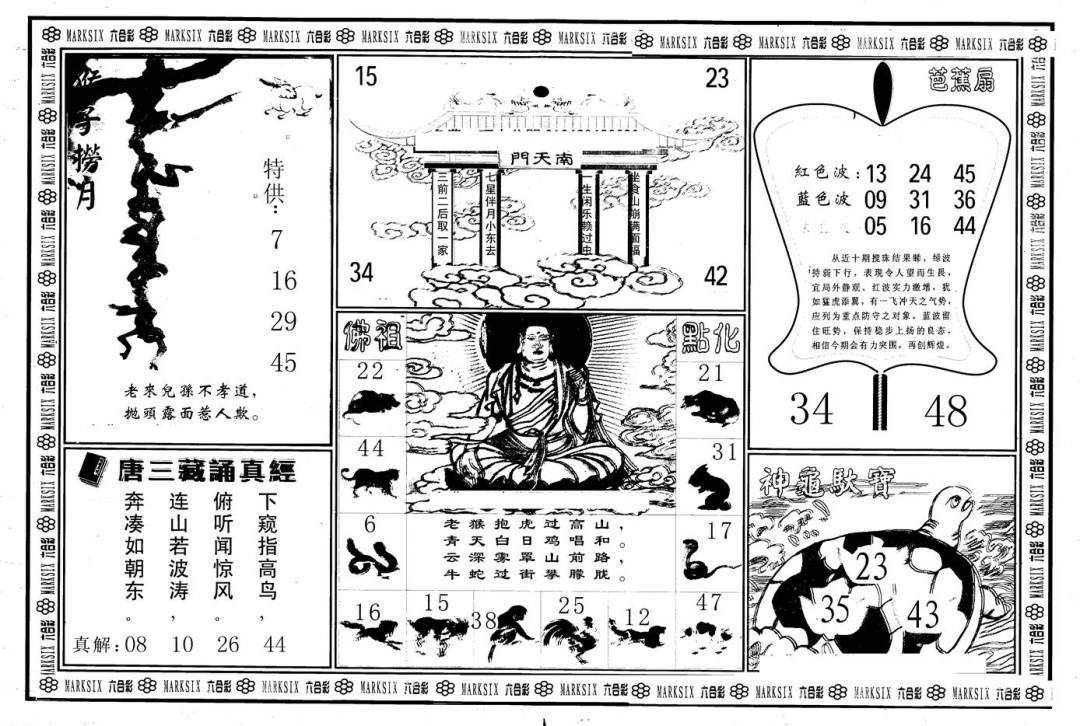 MARKSIX 六合彩 MARKSIX 六合彩 MARKSIX 六合彩 MARKSIX 六合彩 MARKSIX 六合彩 MARKSIX 六合彩 MARKSIX 六合彩 MARKSIX 六合彩 MARKSIX 六合彩 MARKSIX 六合彩
猴子撈月
特供：
7
16
29
45
老來兒孫不孝道，
拋頭露面惹人欺。
唐三藏誦真經
下窺指高鸟，
俯听闻惊风。
连山若波涛，
奔凑如朝东。
真解：08 10 26 44
15 23
南天門
三前二后取一家
七星伴月小东去
一生闲乐赖过虫
坐食山崩满面福
34 42
佛祖 點化
22 21
44 31
6 17
老猴抱虎过高山，
青天白日鸡唱和。
云深雾罩山前路，
牛蛇过街攀朦胧。
16 15 38 25 12 47
芭蕉扇
紅色波：13 24 45
藍色波 09 31 36
05 16 44
从近十期搅珠结果睇，绿波
持弱下行，表现令人望而生畏，
宜局外静观。红波实力激增，犹
如猛虎添翼，有一飞冲天之气势，
应列为重点防守之对象。蓝波留
住旺势，保持稳步上扬的良态，
相信今期会有力突围，再创辉煌。
34 48
神龜馱寶
23
35 43
MARKSIX 六合彩 MARKSIX 六合彩 MARKSIX 六合彩 MARKSIX 六合彩 MARKSIX 六合彩 MARKSIX 六合彩 MARKSIX 六合彩 MARKSIX 六合彩 MARKSIX 六合彩 MARKSIX 六合彩